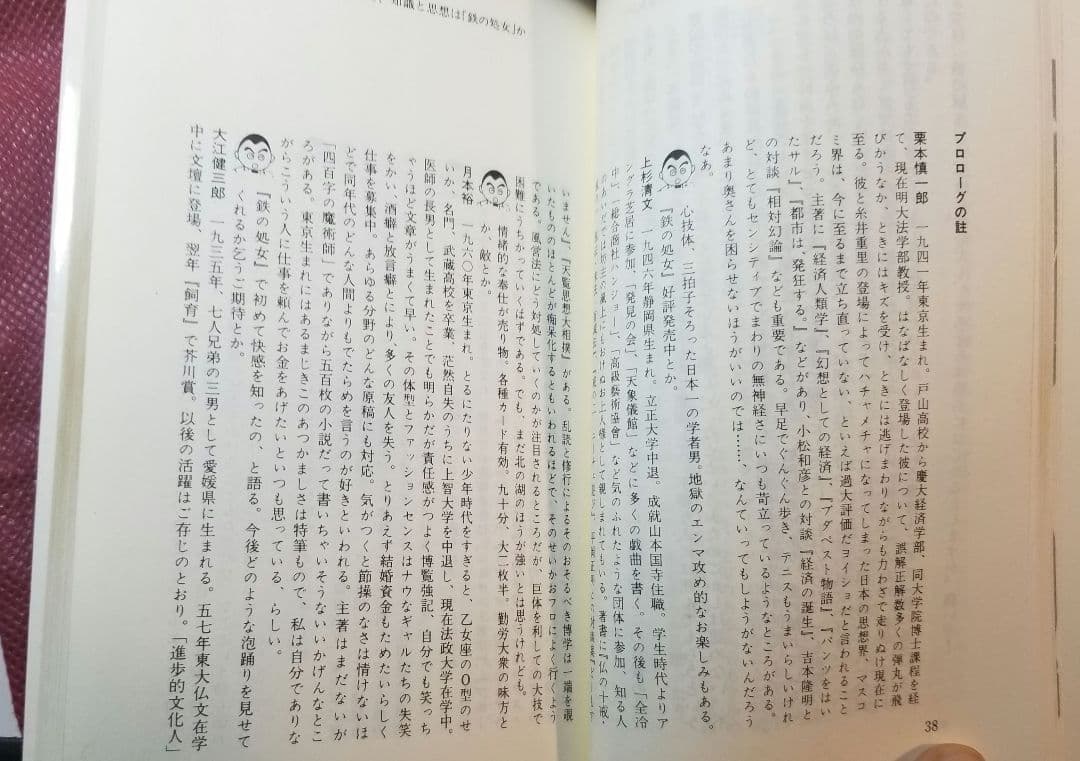 プロローグの註
栗本慎一郎　一九四一年東京生まれ。戸山高校から慶大経済学部、同大学院博士課程を経
て、現在明大法学部教授。はなばなしく登場した彼について、誤解正解数多くの弾丸が飛
びかうなか、ときにはキズを受け、ときには逃げまわりながらも力わざで走りぬけ現在に
至る。彼と糸井重里の登場によってハチャメチャになってしまった日本の思想界、マスコ
ミ界は、今に至るまで立ち直っていない、といえば過大評価だヨイショだと言われること
だろう。主著に『経済人類学』、『幻想としての経済』、『ブダペスト物語』、『パンツをはい
たサル』、『都市は、発狂する。』などがあり、小松和彦との対談『経済の誕生』、吉本隆明と
の対談『相対幻論』なども重要である。早足でぐんぐん歩き、テニスもうまいらしいけれ
ど、とてもセンシティブでまわりの無神経さにいつも苛立っているようなところがある。
あまり奥さんを困らせないほうがいいのでは……、なんていってもしようがないんだろう
なあ。
心技体、三拍子そろった日本一の学者男。地獄のエンマ攻め的なお楽しみもある。
『鉄の処女』好評発売中とか。
上杉清文　一九四六年静岡県生まれ。立正大学中退。成就山本国寺住職。学生時代よりア
ングラ芝居に参加、「発見の会」、「天象儀館」などに多くの戯曲を書く。その後も「全冷
中」、「総合商社バンジョー」、「高級藝術協會」など気のふれたような団体に参加、知る人
38
知識と思想は「鉄の処女」か
いません』、『天覧思想大相撲』がある。乱読と修行によるそのおそるべき博学は一端を覗
いたもののほとんどが痴呆化するともいわれるほどで、そのせいかおフロによく行くよう
である。風営法にどう対処していくのかが注目されるところだが、巨体を利しての大技で
困難にうちかっていくはずである。でも、まだ北の湖のほうが強いとは思うけれども。
情緒的な奉仕が売り物。各種カード有効。九十分、大二枚半。勤労大衆の味方と
か、敵とか。
月本裕　一九六〇年東京生まれ。とるにたりない少年時代をすぎると、乙女座のO型のせ
いか、名門、武蔵高校を卒業、茫然自失のうちに上智大学を中退し、現在法政大学在学中。
医師の長男として生まれたことでも明らかだが責任感がつよく博覧強記、自分でも笑っち
ゃうほど文章がうまくて早い。その体型とファッションセンスはナウなギャルたちの失笑
をかい、酒癖と放言癖とにより、多くの友人を失う。とりあえず結婚資金もためたいらしく
仕事を募集中。あらゆる分野のどんな原稿にも対応。気がつくと節操のなさは情けないほ
どで同年代のどんな人間よりもでたらめを言うのが好きといわれる。主著はまだないが
「四百字の魔術師」でありながら五百枚の小説だって書いちゃいそうないいかげんなとこ
ろがある。東京生まれにはあるまじきこのあつかましさは特筆もので、私は自分でありな
がらこういう人に仕事を頼んでお金をあげたいといつも思っている、らしい。
『鉄の処女』で初めて快感を知ったの、と語る。今後どのような泡踊りを見せて
くれるか乞うご期待とか。
大江健三郎　一九三五年、七人兄弟の三男として愛媛県に生まれる。五七年東大仏文在学
中に文壇に登場、翌年『飼育』で芥川賞。以後の活躍はご存じのとおり。「進歩的文化人」